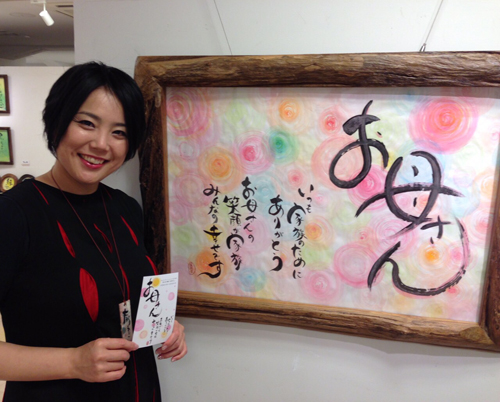 お母さん
いつも家族のために
ありがとう
お母さんの
笑顔で家族
みんなが幸せです
お母さん